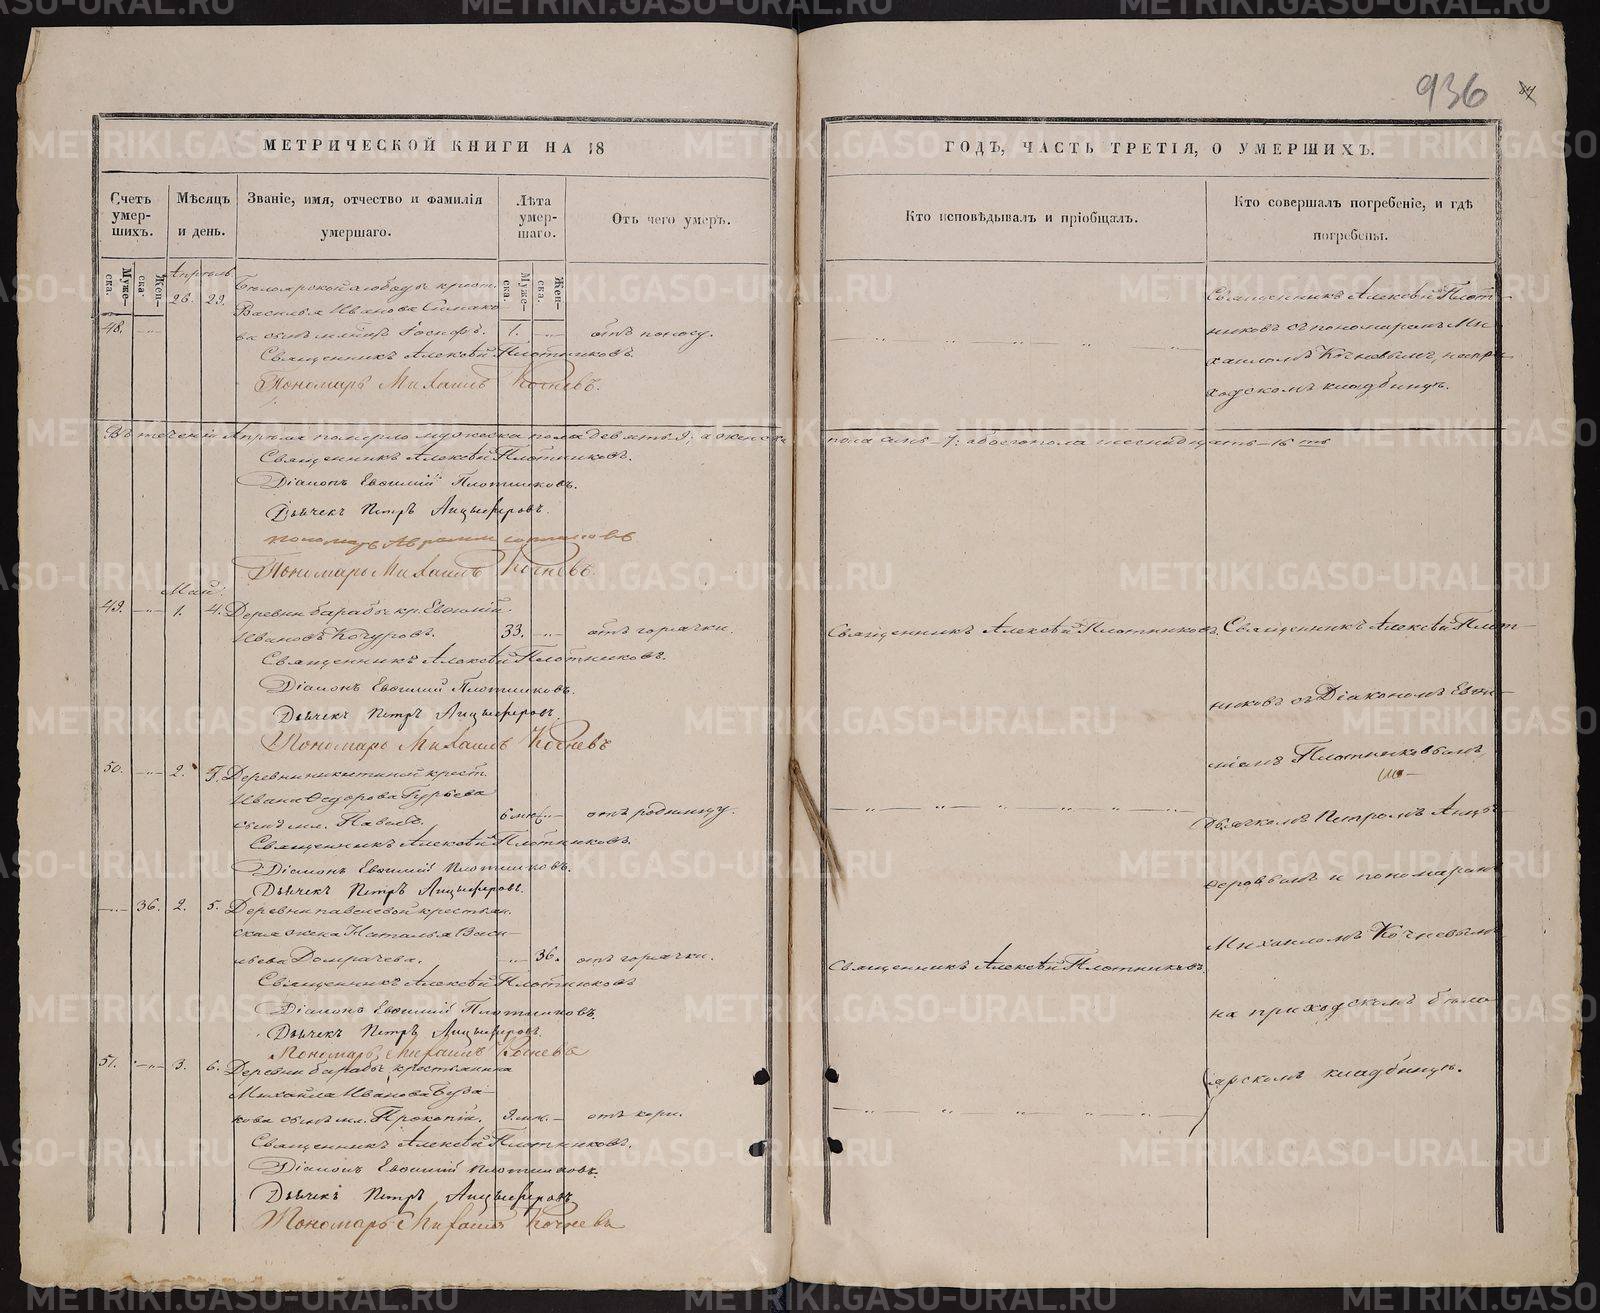 936
МЕТРИЧЕСКОЙ КНИГИ НА 18
ГОДЪ, ЧАСТЬ ТРЕТІЯ, О УМЕРШИХЪ.
Счетъ умер-шихъ.
Мѣсяцъ и день.
Званіе, имя, отчество и фамилія умершаго.
Лѣта умер-шаго.
Отъ чего умеръ.
Кто исповѣдывалъ и пріобщалъ.
Кто совершалъ погребеніе, и гдѣ погребены.
Муже-ска.
Жен-ска.
Муже-ска.
Жен-ска.
Апрѣль.
26. 29.
Бѣлоярской слободы крест.
Василья Иванова
48.
ва сынъ млнцъ Іосифъ. 1. отъ поносу.
Священникъ Алексѣй Плотниковъ.
Пономарь Михаилъ Кочневъ.
Священникъ Алексѣй Плот-
никовъ съ пономаремъ Ми-
хаиломъ Кочневымъ, на при-
ходскомъ кладбищѣ.
Въ теченіи Апрѣля померло мужеска пола девять 9: а женска
пола семь 7: обоего пола шеснадцать 16ть
Священникъ Алексѣй Плотниковъ.
Діаконъ Евѳимій Плотниковъ.
Дьячекъ Петръ Анцыферовъ.
Пономарь
Пономарь Михаилъ Кочневъ.
Май.
49. 1. 4. Деревни барабы кр. Евѳимій
Ивановъ Кочуровъ. 33. отъ горячки.
Священникъ Алексѣй Плотниковъ.
Діаконъ Евѳимій Плотниковъ.
Дьячекъ Петръ Анцыферовъ.
Пономарь Михаилъ Кочневъ
Священникъ Алексѣй Плотниковъ.
Священникъ Алексѣй Плот-
никовъ съ Діакономъ Евѳи-
міемъ Плотниковымъ,
Дьячкомъ Петромъ Анцы-
феровымъ и пономаремъ
Михаиломъ Кочневымъ
на приходскомъ бѣло-
ярскомъ кладбищѣ.
50. 2. 5. Деревни никитиной крест.
Ивана Ѳедорова Гурьева
сынъ мл. Павелъ. 6 отъ родимцу.
Священникъ Алексѣй Плотниковъ.
Діаконъ Евѳимій Плотниковъ.
Дьячекъ Петръ Анцыферовъ.
36. 2. 5. Деревни крестьян
ская жена Наталья Васи-
льева Домрачева. 36. отъ горячки.
Священникъ Алексѣй Плотниковъ
Діаконъ Евѳимій Плотниковъ.
Дьячекъ Петръ Анцыферовъ.
Пономарь Михаилъ Кочневъ
Священникъ Алексѣй Плотниковъ.
51. 3. 6. Деревни барабы крестьянина
Михайла Иванова
кова сынъ мл. Прокопій. отъ кори.
Священникъ Алексѣй Плотниковъ.
Діаконъ Евѳимій Плотниковъ.
Дьячекъ Петръ Анцыферовъ
Пономарь Михаилъ Кочневъ
METRIKI.GASO-URAL.RU